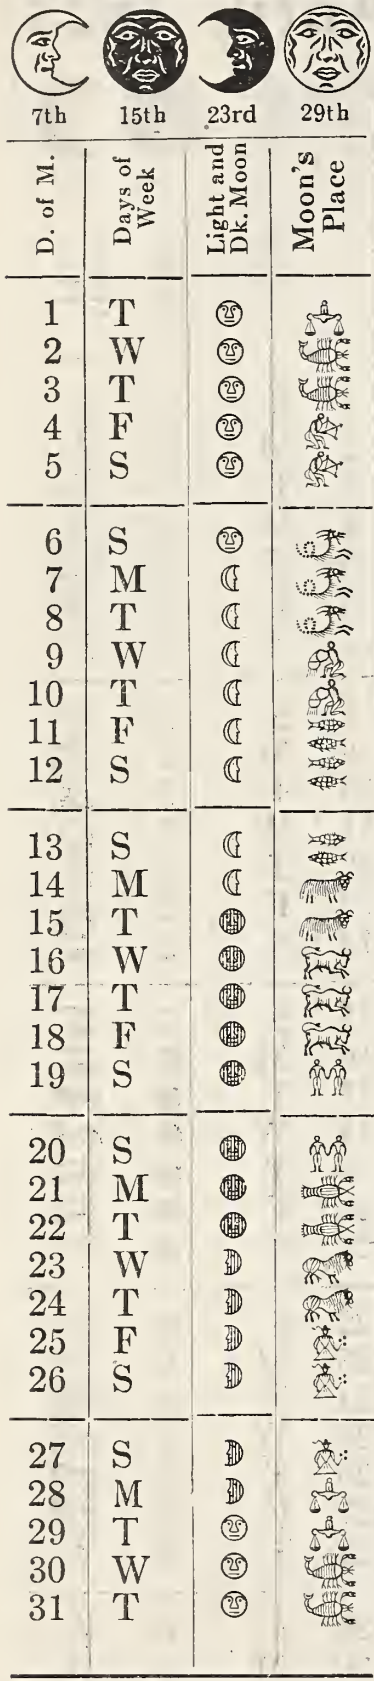 7th 15th 23rd 29th
D. of M. Days of Week Light and Dk. Moon Moon's Place
1 T
2 W
3 T
4 F
5 S
6 S
7 M
8 T
9 W
10 T
11 F
12 S
13 S
14 M
15 T
16 W
17 T
18 F
19 S
20 S
21 M
22 T
23 W
24 T
25 F
26 S
27 S
28 M
29 T
30 W
31 T